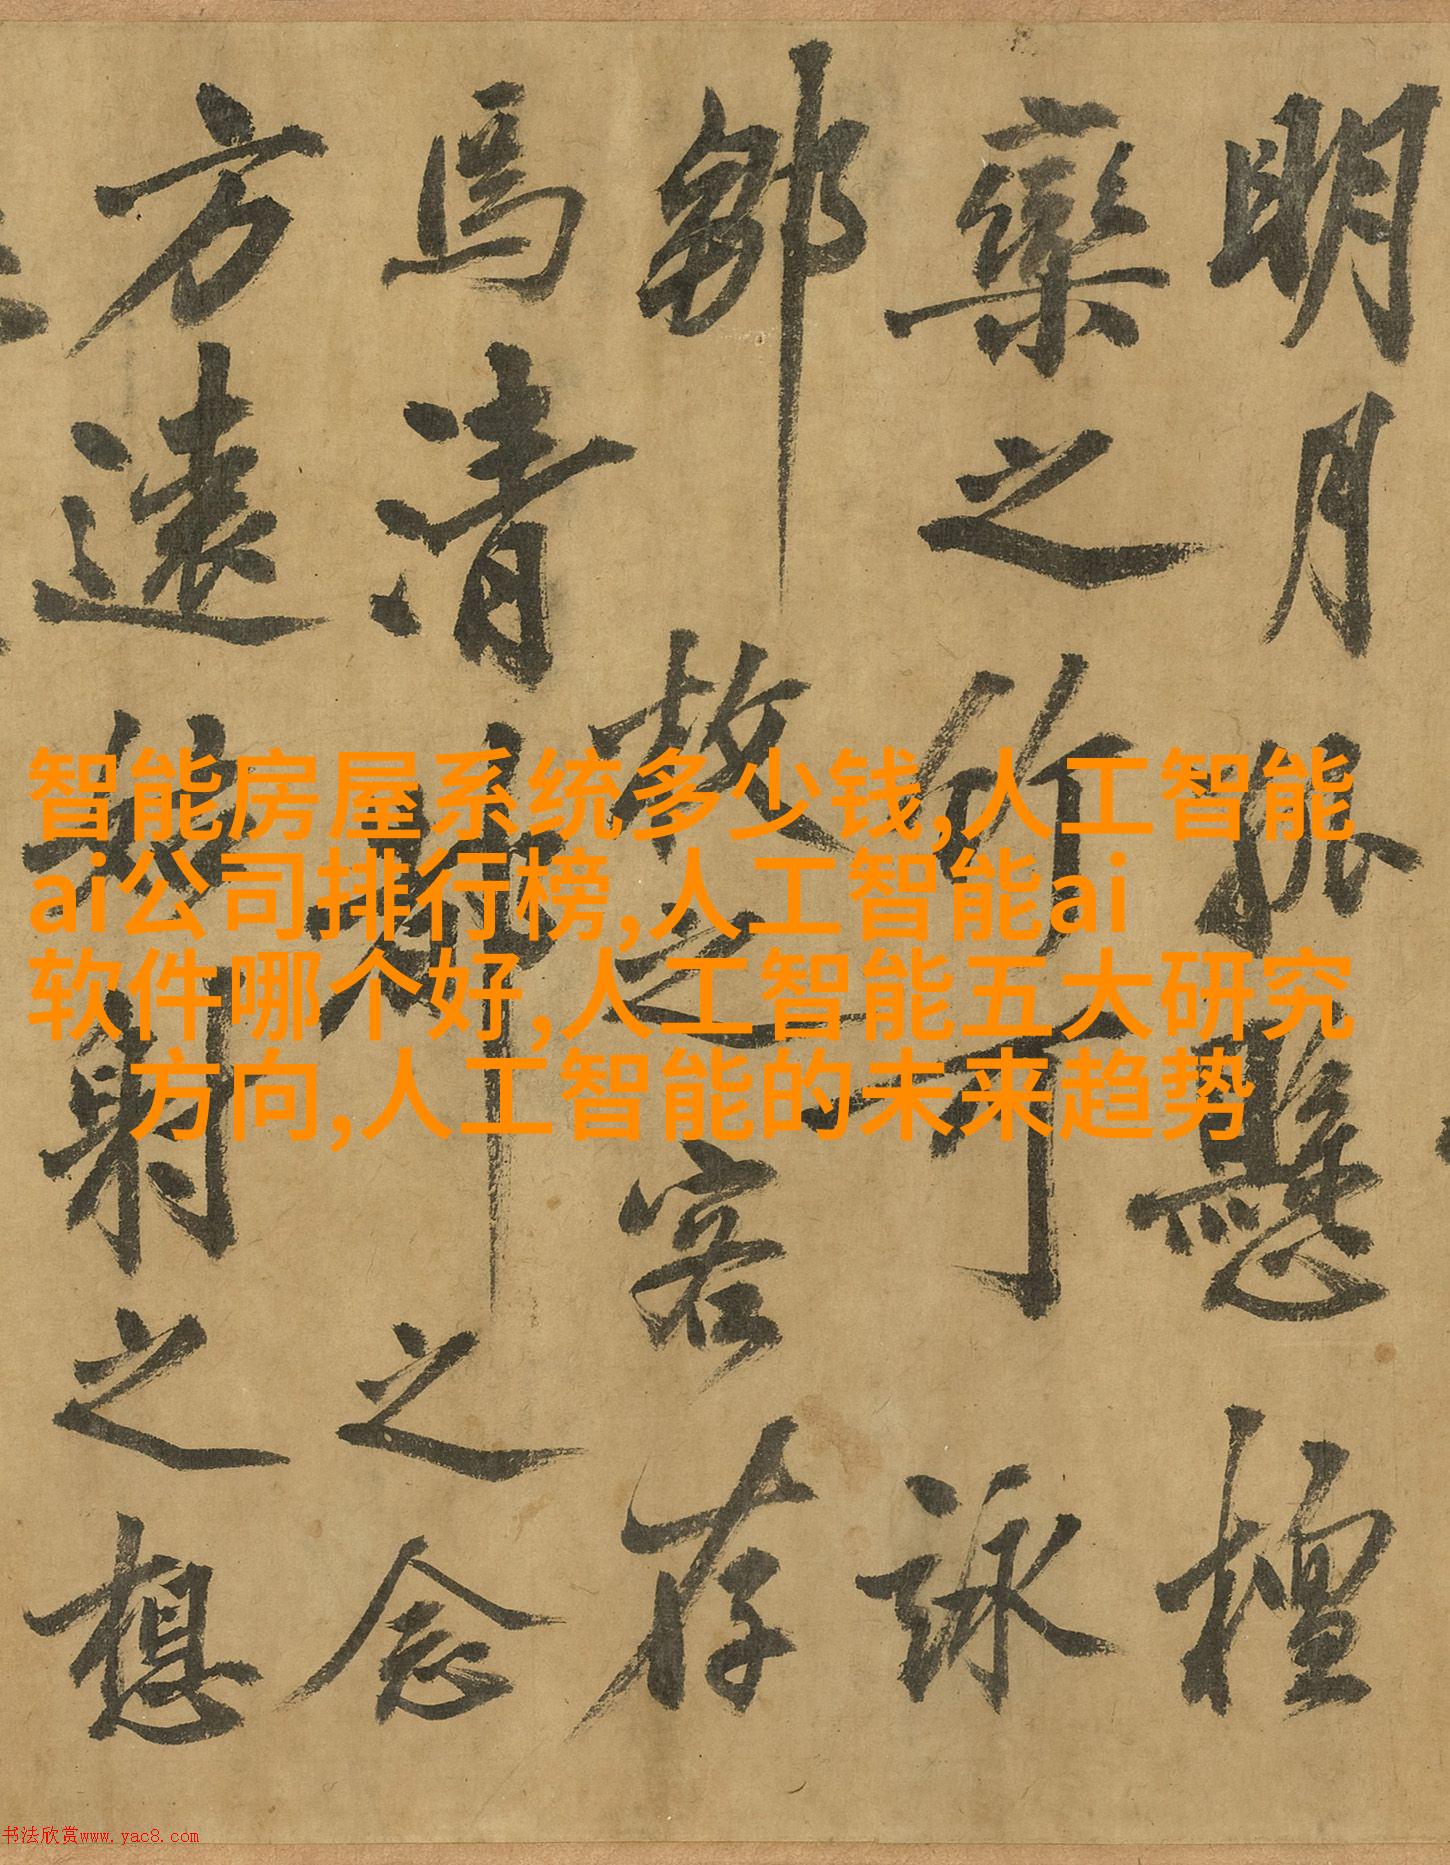 明月懸檀
欒之竹可詠
鄒故之客存
馬清之念
方遠射之想
智能房屋系统多少钱,人工智能
ai公司排行榜,人工智能ai
软件哪个好,人工智能五大研究
方向,人工智能的未来趋势
书法欣赏www.yac8.com